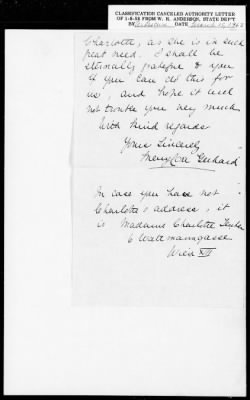 CLASSIFICATION CANCELED AUTHORITY LETTER
OF 1-8-58 FROM W. H. ANDERSON, STATE DEP'T
BY DATE
Charlotte, as she is in such
great need. I shall be
eternally grateful to you
if you can do this for
us, and hope it will
not trouble you very much
With kind regards
Yours Sincerely
Gerhard
In case you have not
Charlotte's address, it
is Madame Charlotte
6 Wattmanngasse
Wien XIII